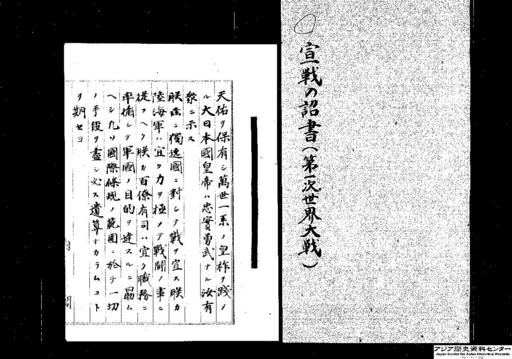 宣戦の詔書（第一次世界大戦）
天佑ヲ保有シ萬世一系ノ皇祚ヲ踐メ
ル大日本國皇帝ハ忠實勇武ナル汝有
衆ニ示ス
朕茲ニ獨逸國ニ對シテ戰ヲ宣ス朕カ
陸海軍ハ宜ク力ヲ極メテ戰鬪ノ事ニ
從フヘク朕カ百僚有司ハ宜ク職務ニ
率循シテ軍國ノ目的ヲ達スルニ勗ム
ヘシ凡ソ國際條規ノ範圍ニ於テ一切
ノ手段ヲ盡シ必ス遺算ナカラムコト
ヲ期セヨ
アジア歴史資料センター
Japan Center for Asian Historical Records